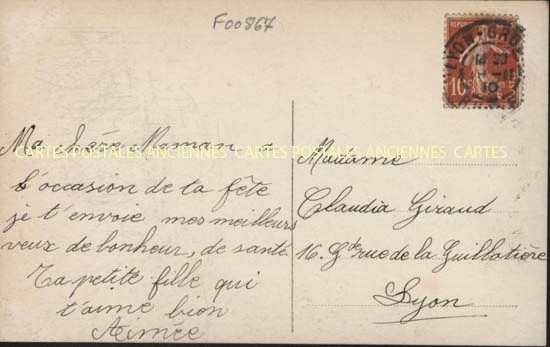 F00867
LYON-GROL
10c
CARTES POSTALES ANCIENNES CARTES POSTALES ANCIENNES CARTES
Ma chère Maman a
l'occasion de ta fête
je t'envoie mes meilleurs
veux de bonheur, de santé.
Ta petite fille qui
t'aime bien
Aimée
Madame
Claudia Giraud
16. Gde rue de la Guillotière
Lyon